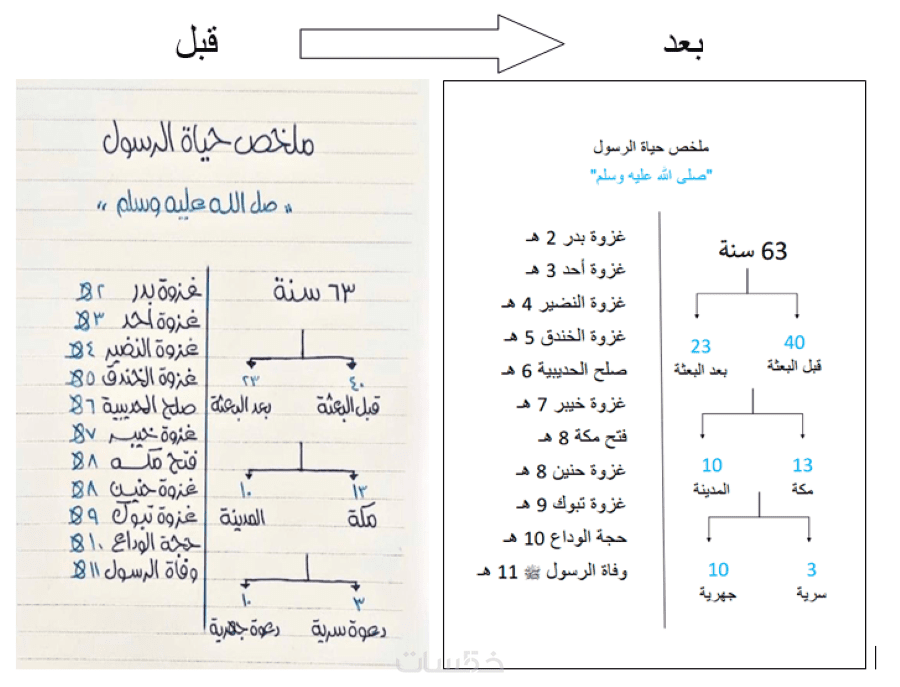 قبل
بعد
ملخص حياة الرسول
" صل الله عليه وسلم "
٦٣ سنة
٤٠
٢٣
قبل البعثة
بعد البعثة
١٣
١٠
مكة
المدينة
٣
١٠
دعوة سرية
دعوة جهرية
غزوة بدر ٢ هـ
غزوة أحد ٣ هـ
غزوة النضير ٤ هـ
غزوة الخندق ٥ هـ
صلح الحديبية ٦ هـ
غزوة خيبر ٧ هـ
فتح مكه ٨ هـ
غزوة حنين ٨ هـ
غزوة تبوك ٩ هـ
حجة الوداع ١٠ هـ
وفاة الرسول ١١ هـ
ملخص حياة الرسول
"صلى الله عليه وسلم"
63 سنة
40
23
قبل البعثة
بعد البعثة
13
10
مكة
المدينة
3
10
سرية
جهرية
غزوة بدر 2 هـ
غزوة أحد 3 هـ
غزوة النضير 4 هـ
غزوة الخندق 5 هـ
صلح الحديبية 6 هـ
غزوة خيبر 7 هـ
فتح مكة 8 هـ
غزوة حنين 8 هـ
غزوة تبوك 9 هـ
حجة الوداع 10 هـ
وفاة الرسول ﷺ 11 هـ
خمسات